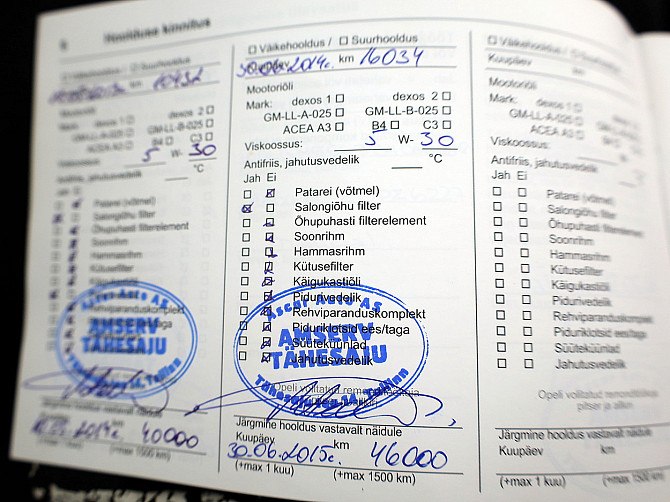 Hoolduse kinnitus
Väikehooldus / Suurhooldus
km 10432
Mootoriõli
Mark: dexos 1 dexos 2
GM-LL-A-025 GM-LL-B-025
ACEA A3 B4 C3
Viskoossus: 5 W- 30
Antifriis, jahutusvedelik °C
Jah Ei
Patarei (võtmel)
Salongiõhu filter
Õhupuhasti filterelement
Soonrihm
Hammasrihm
Kütusefilter
Käigukastiõli
Rehviparanduskomplekt
ees/taga
AMSERV
TÄHESAJU
Tallinn
2014c. 40000
(+max 1500 km)
Väikehooldus / Suurhooldus
Kuupäev 30.06.2014c. km 16034
Mootoriõli
Mark: dexos 1 dexos 2
GM-LL-A-025 GM-LL-B-025
ACEA A3 B4 C3
Viskoossus: 5 W- 30
Antifriis, jahutusvedelik °C
Jah Ei
Patarei (võtmel)
Salongiõhu filter
Õhupuhasti filterelement
Soonrihm
Hammasrihm
Kütusefilter
Käigukastiõli
Pidurivedelik
Rehviparanduskomplekt
Piduriklotsid ees/taga
Süüteküünlad
Jahutusvedelik
Ascar Auto AS
AMSERV
TÄHESAJU
Tähesaju tee 14, Tallinn
Opeli volitatud
Järgmine hooldus vastavalt näidule
Kuupäev km
30.06.2015c. 46000
(+max 1 kuu) (+max 1500 km)
Väikehooldus / Suurhooldus
Kuupäev km
Mootoriõli
Mark: dexos 1 dexos 2
GM-LL-A-025 GM-LL-B-025
ACEA A3 B4 C3
Viskoossus: W-
Antifriis, jahutusvedelik °C
Jah Ei
Patarei (võtmel)
Salongiõhu filter
Õhupuhasti filterelement
Soonrihm
Hammasrihm
Kütusefilter
Käigukastiõli
Pidurivedelik
Rehviparanduskomplekt
Piduriklotsid ees/taga
Süüteküünlad
Jahutusvedelik
Opeli volitatud remonditöökoja
pitser ja allkiri
Järgmine hooldus vastavalt näidule
Kuupäev km
(+max 1 kuu) (+max 1500 km)